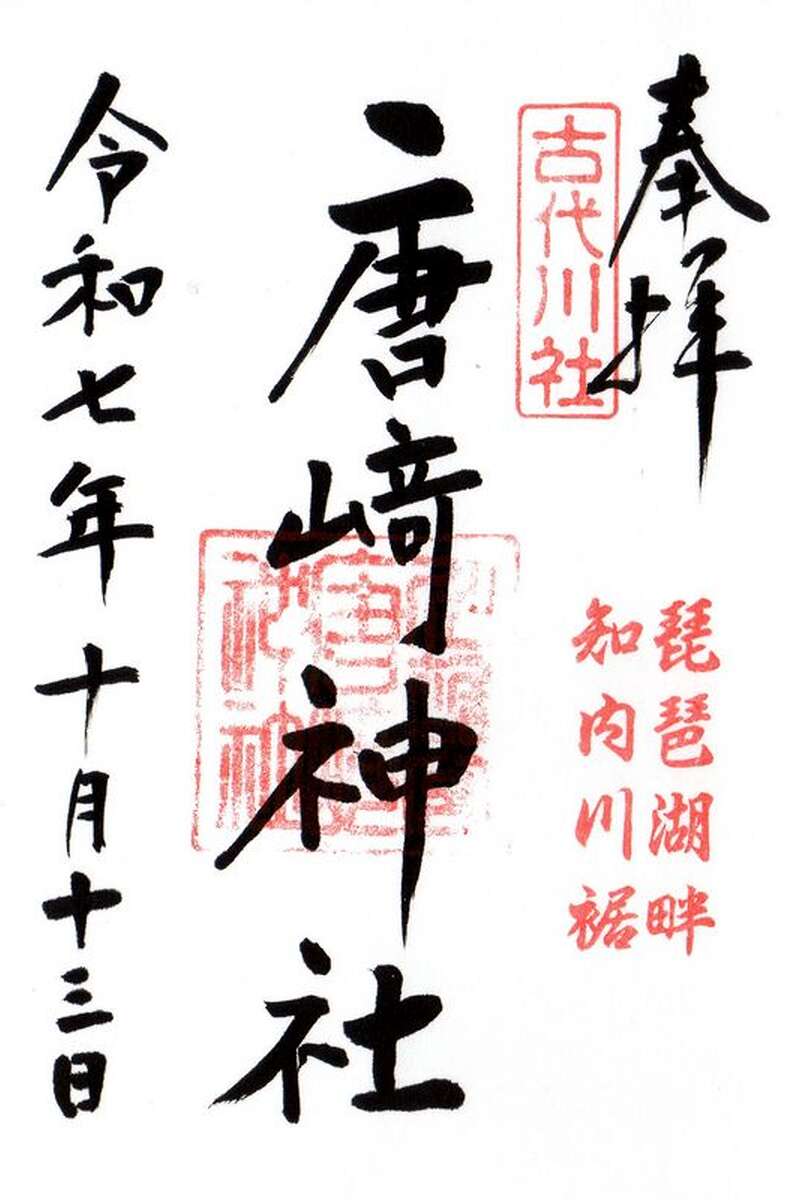 奉拝
古代川社
琵琶湖畔
知内川裾
唐﨑神社
令和七年十月十三日